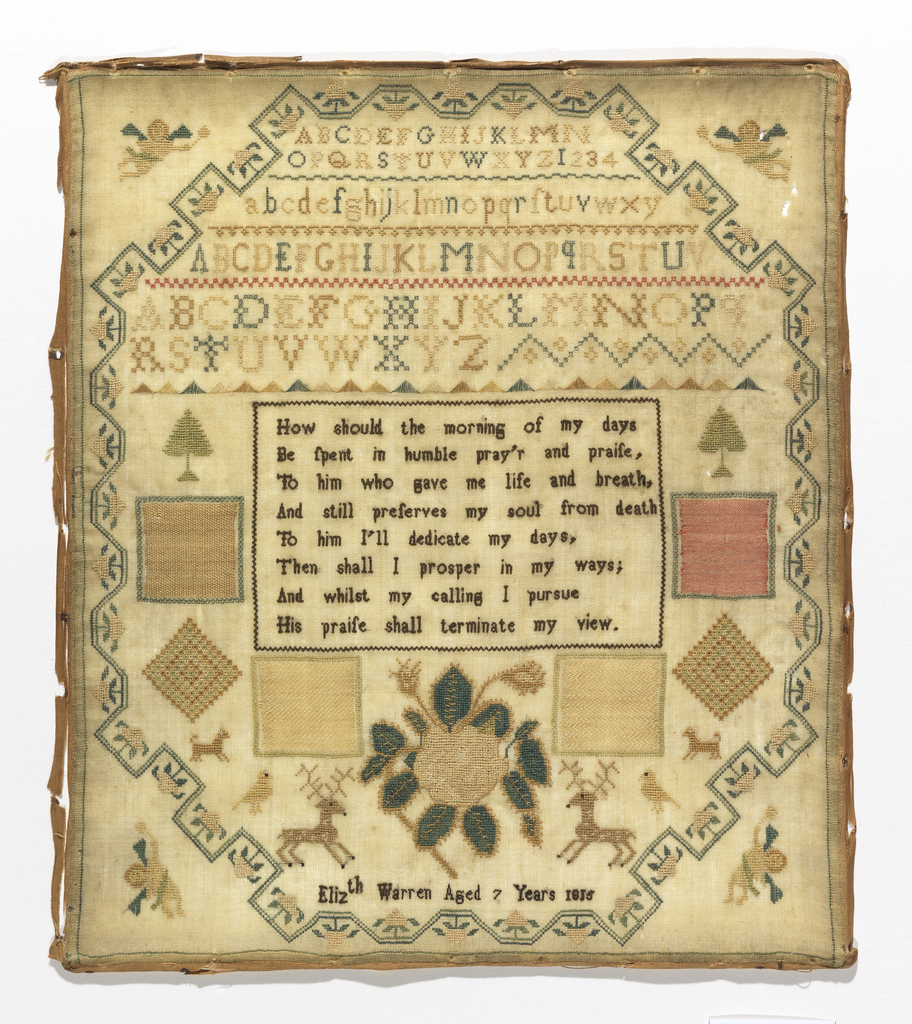 ABCDEFGHIJKLMN
OPQRSTUVWXYZ1234
abcdefghijklmnopqrſtuvwxy
ABCDEFGHIJKLMNOPqRSTUV
ABCDEFGHIJKLMNOPq
RSTUVWXYZ
How should the morning of my days
Be ſpent in humble pray'r and praiſe,
To him who gave me life and breath,
And still preſerves my soul from death
To him I'll dedicate my days,
Then shall I prosper in my ways;
And whilst my calling I pursue
His praiſe shall terminate my view.
Elizth Warren Aged 7 Years